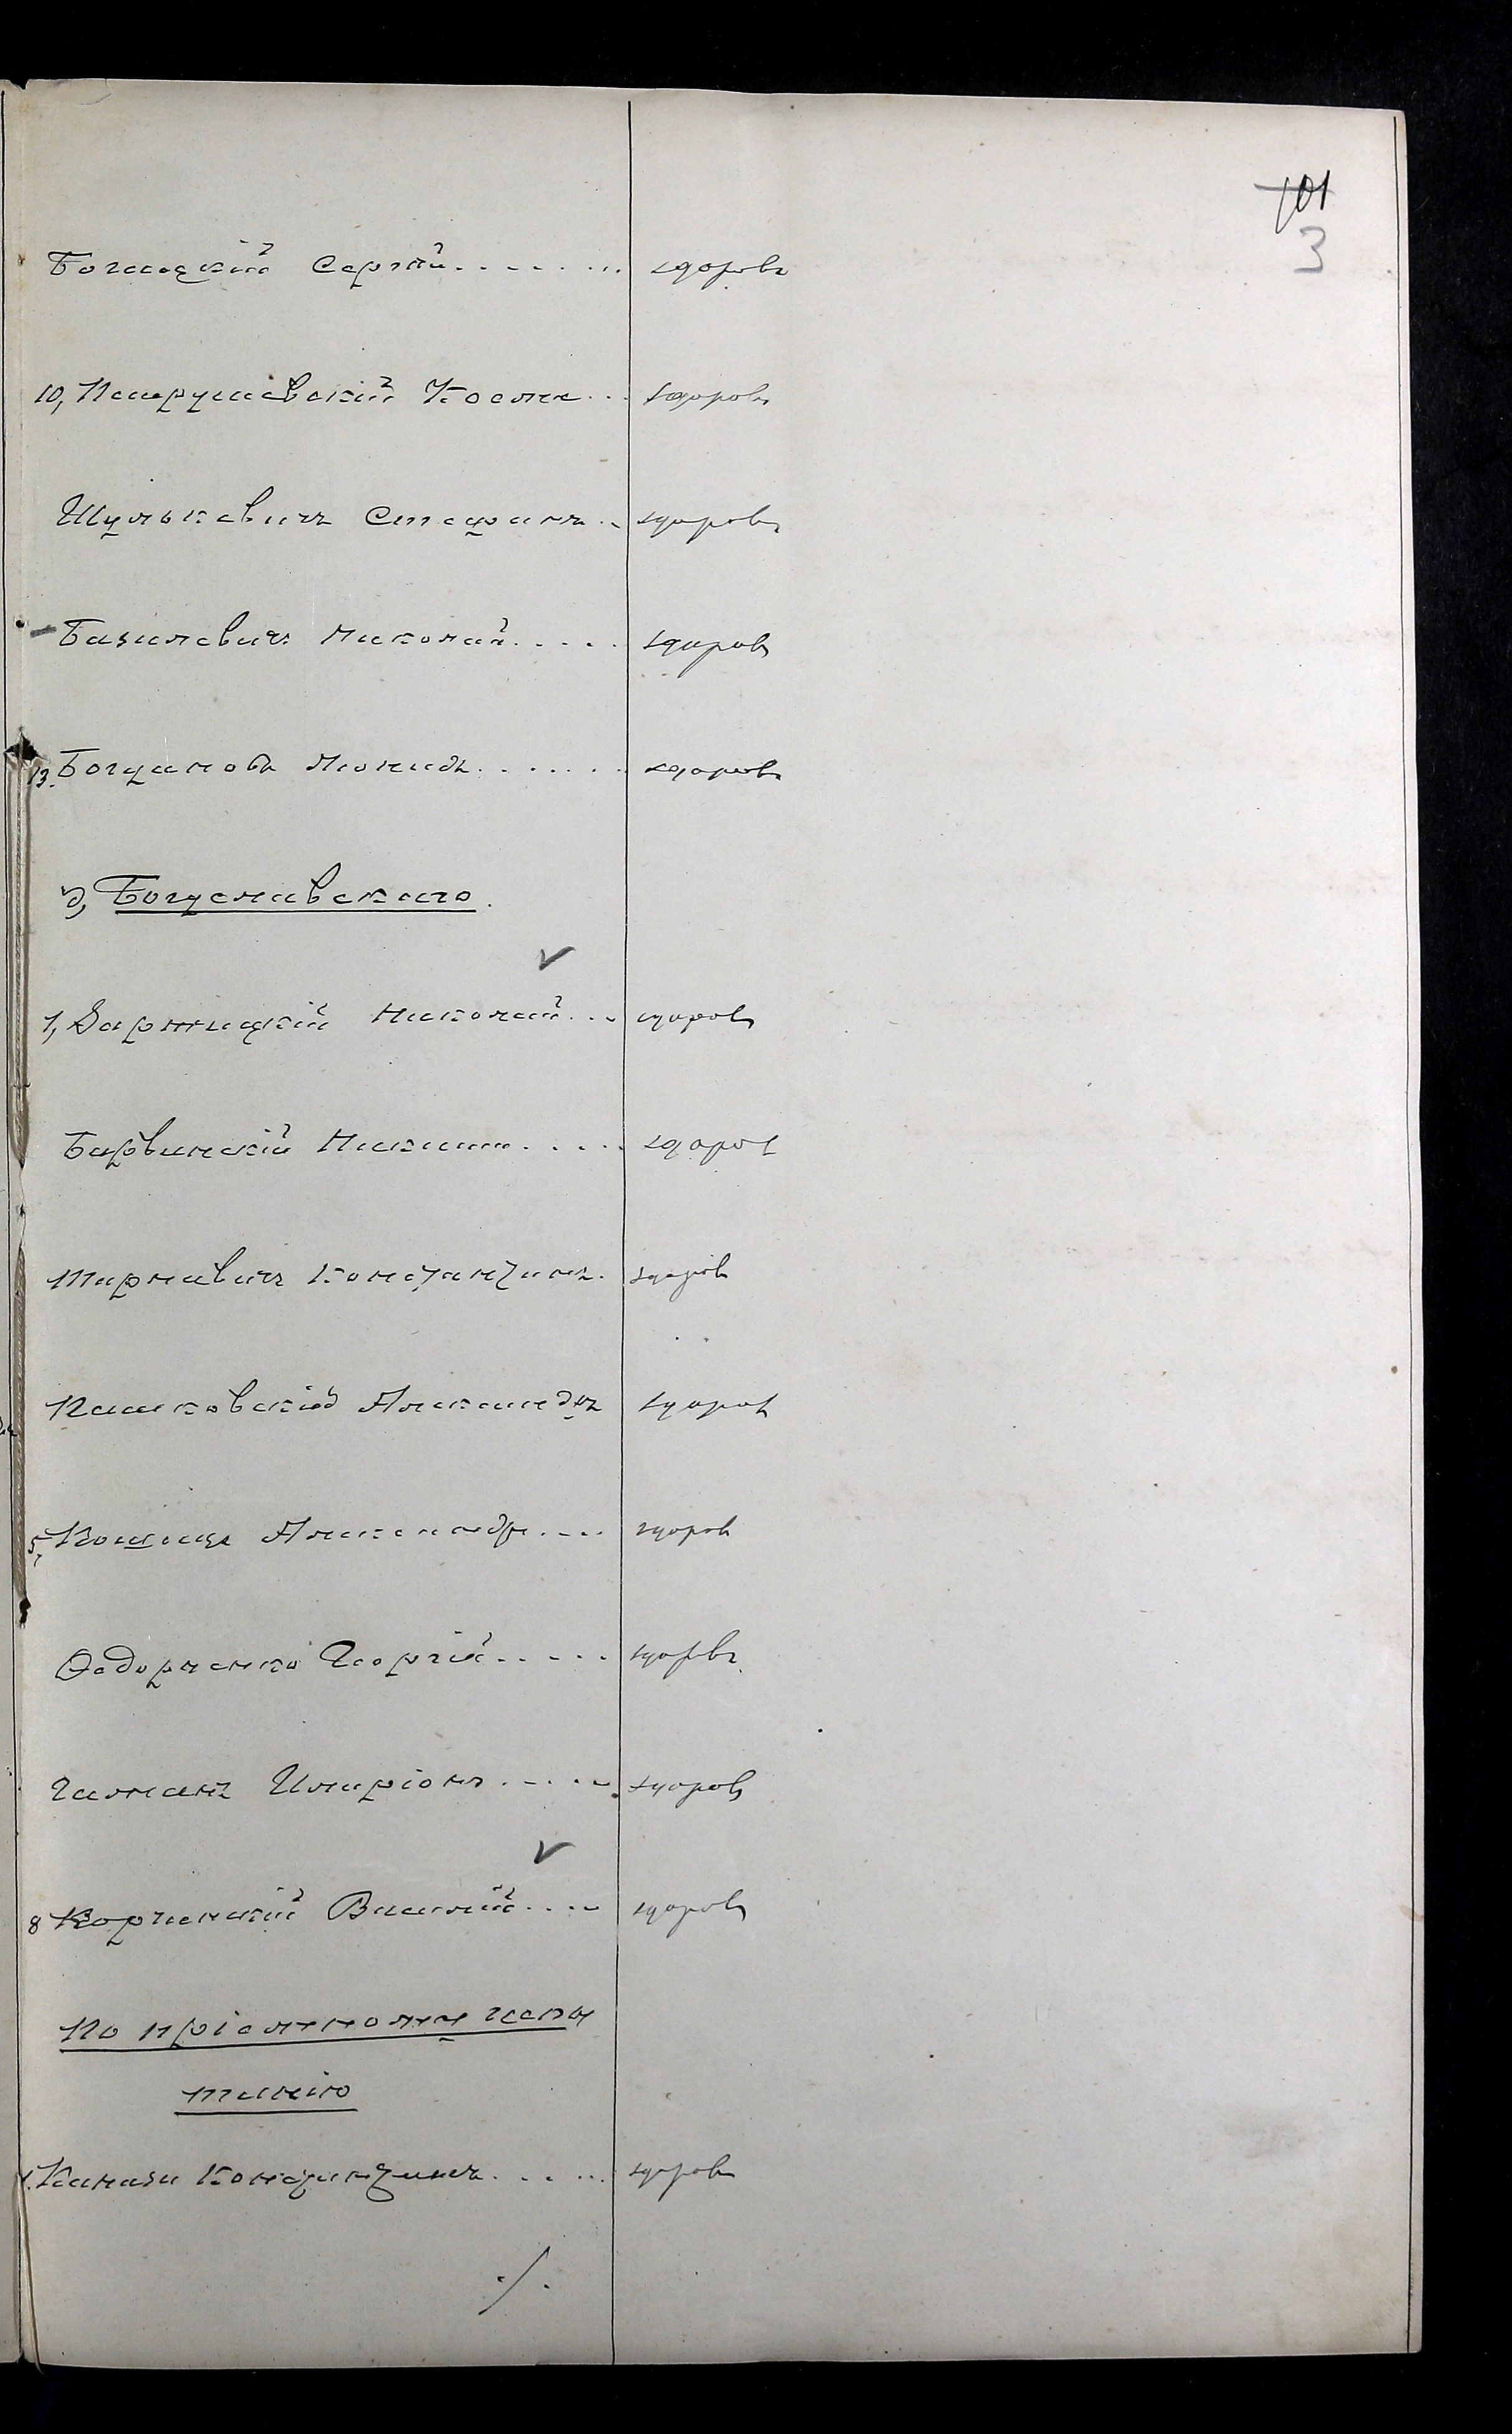 101
3
Богацкій Сергѣй здоровъ
10, Петрушевскій Косма здоровъ
Шулькевичъ Стефанъ здоровъ
Базилевичъ Николай здоровъ
13. Богдановъ Леонидъ здоровъ
д, Богуславскаго.
1, Заржицкій Николай здоровъ
Барвинскій Никита здоровъ
Тарнавичъ Константинъ здоровъ
Пашковскій Александръ здоровъ
5, Кошицъ Александръ здоровъ
Ѳедоренко Георгій здоровъ
Гаманъ Иларіонъ здоровъ
8 Корчинскій Василій здоровъ
По пріемному испы
танію
1. Канаки Константинъ здоровъ
./.